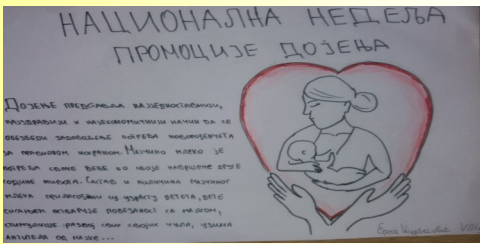 НАЦИОНАЛНА НЕДЕЉА
ПРОМОЦИЈЕ ДОЈЕЊА
ДОЈЕЊЕ ПРЕДСТАВЉА НАЈЈЕДНОСТАВНИЈИ,
НАЈЗДРАВИЈИ И НАЈЕКОНОМИЧНИЈИ НАЧИН ДА СЕ
ОБЕЗБЕДИ ЗАДОВОЉЕЊЕ ПОТРЕБА НОВОРОЂЕНЧЕТА
ЗА ПРАВИЛНОМ ИСХРАНОМ. МАЈЧИНО МЛЕКО ЈЕ
ПОТРЕБА СВАКЕ БЕБЕ ДО СВОЈЕ НАВРШЕНЕ ДРУГЕ
ГОДИНЕ ЖИВОТА. САСТАВ И КОЛИЧИНА МАЈЧИНОГ
МЛЕКА ПРИЛАГОЂЕНИ СУ УЗРАСТУ ДЕТЕТА, ДЕТЕ
СИСАЊЕМ ОСТВАРУЈЕ ПОВЕЗАНОСТ СА МАЈКОМ,
СТИМУЛИШЕ РАЗВОЈ СВИХ СВОЈИХ ЧУЛА, УЗИМА
АНТИТЕЛА ОД МАЈКЕ...